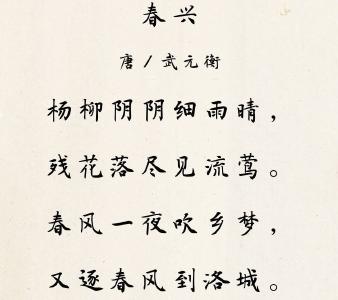 春兴
唐/武元衡
杨柳阴阴细雨晴，
残花落尽见流莺。
春风一夜吹乡梦，
又逐春风到洛城。